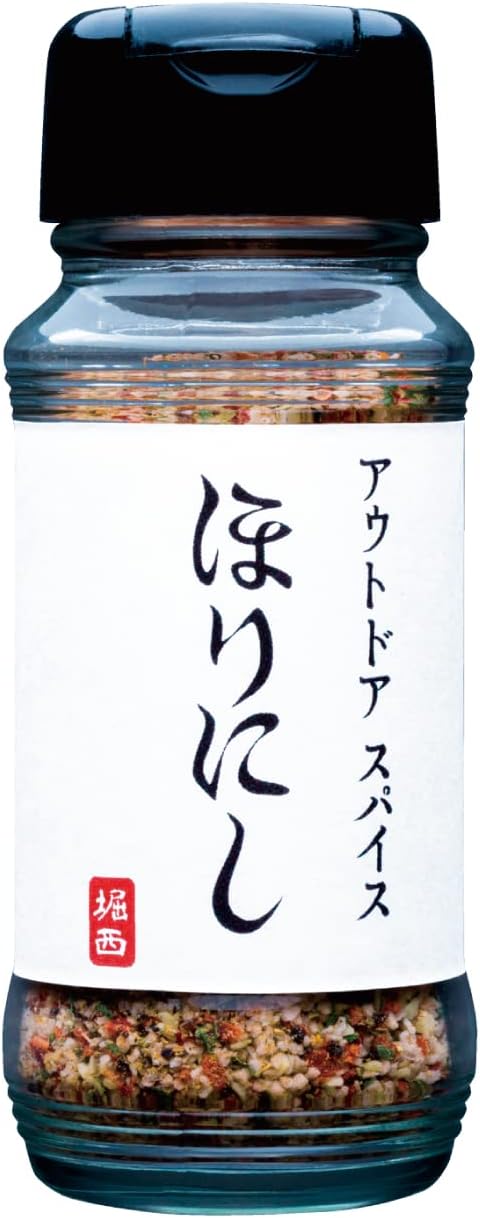 アウトドア スパイス
ほりにし
堀西